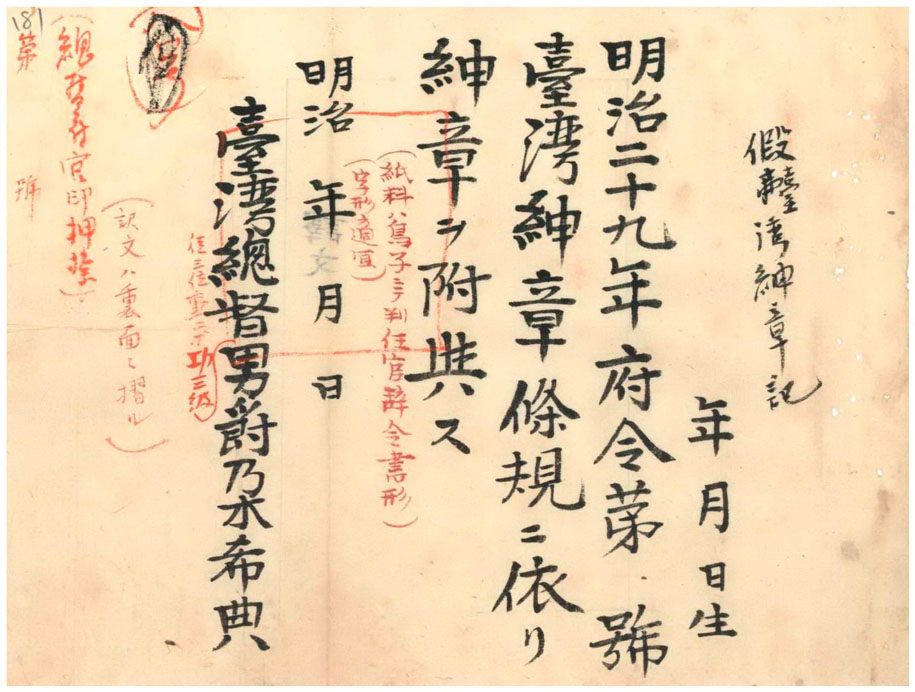 假臺灣紳章記
年月日生
明治二十九年府令第 號
臺灣紳章條規ニ依リ
紳章ヲ附與ス
(紙料ハ鳥子ニ判任官辭令書形)
(字形ハ適宜)
明治 年 月 日
臺灣總督男爵乃木希典
位三位勳二等功三級
(訳文ハ裏面ニ摺ル)
(總督府官印押捺)
第 號
181